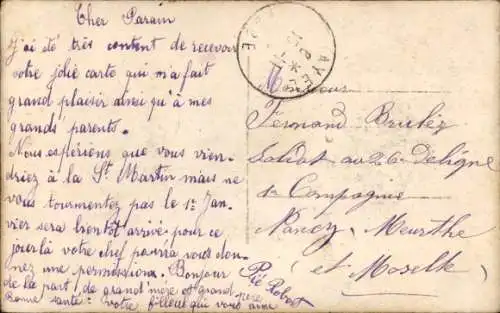 Cher Parain
J'ai été très content de recevoir
votre jolie carte qui m'a fait
grand plaisir ainsi qu'à mes
grands parents.
Nous espérions que vous vien-
driez à la St. Martin mais ne
vous tourmentez pas le 1er Jan-
vier sera bientôt arrivé pour ce
jour là votre chef pourra vous don-
nez une permission. Bonjour
de la part de grand'mère et grand père
Bonne santé. votre filleul qui vous aime
Pié Robert
Monsieur
Fernand
Soldat au 26e de ligne
Compagnie
Nancy Meurthe
et Moselle